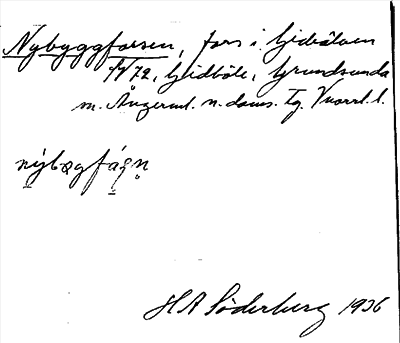 Nybyggforsen, fors i Gideälven
f4/72, Gidböle, Grundsunda
m. Ångerml. n. doms. Tg. Vnorrl. l.
nybøgfáṣṇ
H A Söderberg 1936